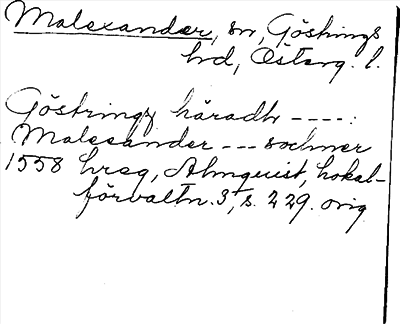 Malexander, sn, Göstrings
hd, Österg. l.
Göstrings häradh ----:
Malexander --- sochner
1558 hreg, Almquist, Lokal-
förvaltn. 3, s. 229. orig